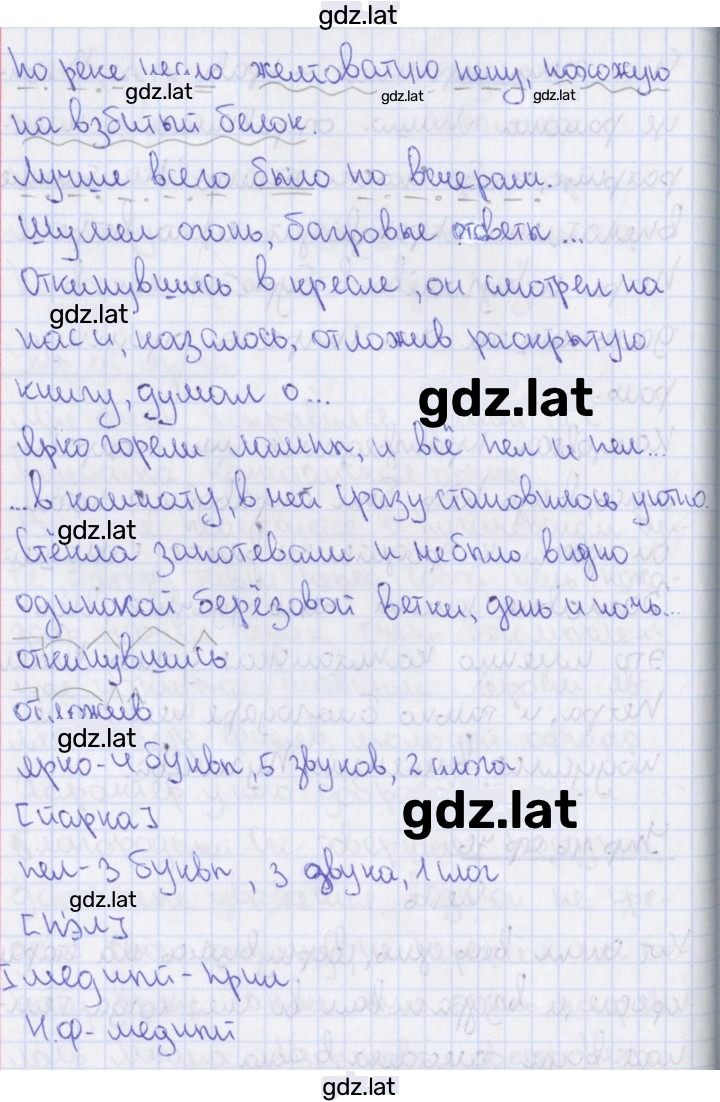 gdz.lat
по реке несло желтоватую пену, похожую
gdz.lat
gdz.lat
gdz.lat
на взбитый белок.
Лучше всего было по вечерам.
Шумел огонь, багровые отсветы ...
Откинувшись в кресле, он смотрел на
gdz.lat
нас и, казалось, отложив раскрытую
книгу, думал о...
gdz.lat
Ярко горели лампы, и всё пел и пел...
...в комнату, в ней сразу становилось уютно.
gdz.lat
Стёкла запотевали и не было видно
одинокой берёзовой ветки, день и ночь...
откинувшись
отложив
gdz.lat
ярко - 4 буквы, 5 звуков, 2 слога
gdz.lat
[йарка]
пел - 3 буквы, 3 звука, 1 слог
gdz.lat
[п'эл]
I медный - прил
Н.ф - медный
gdz.lat